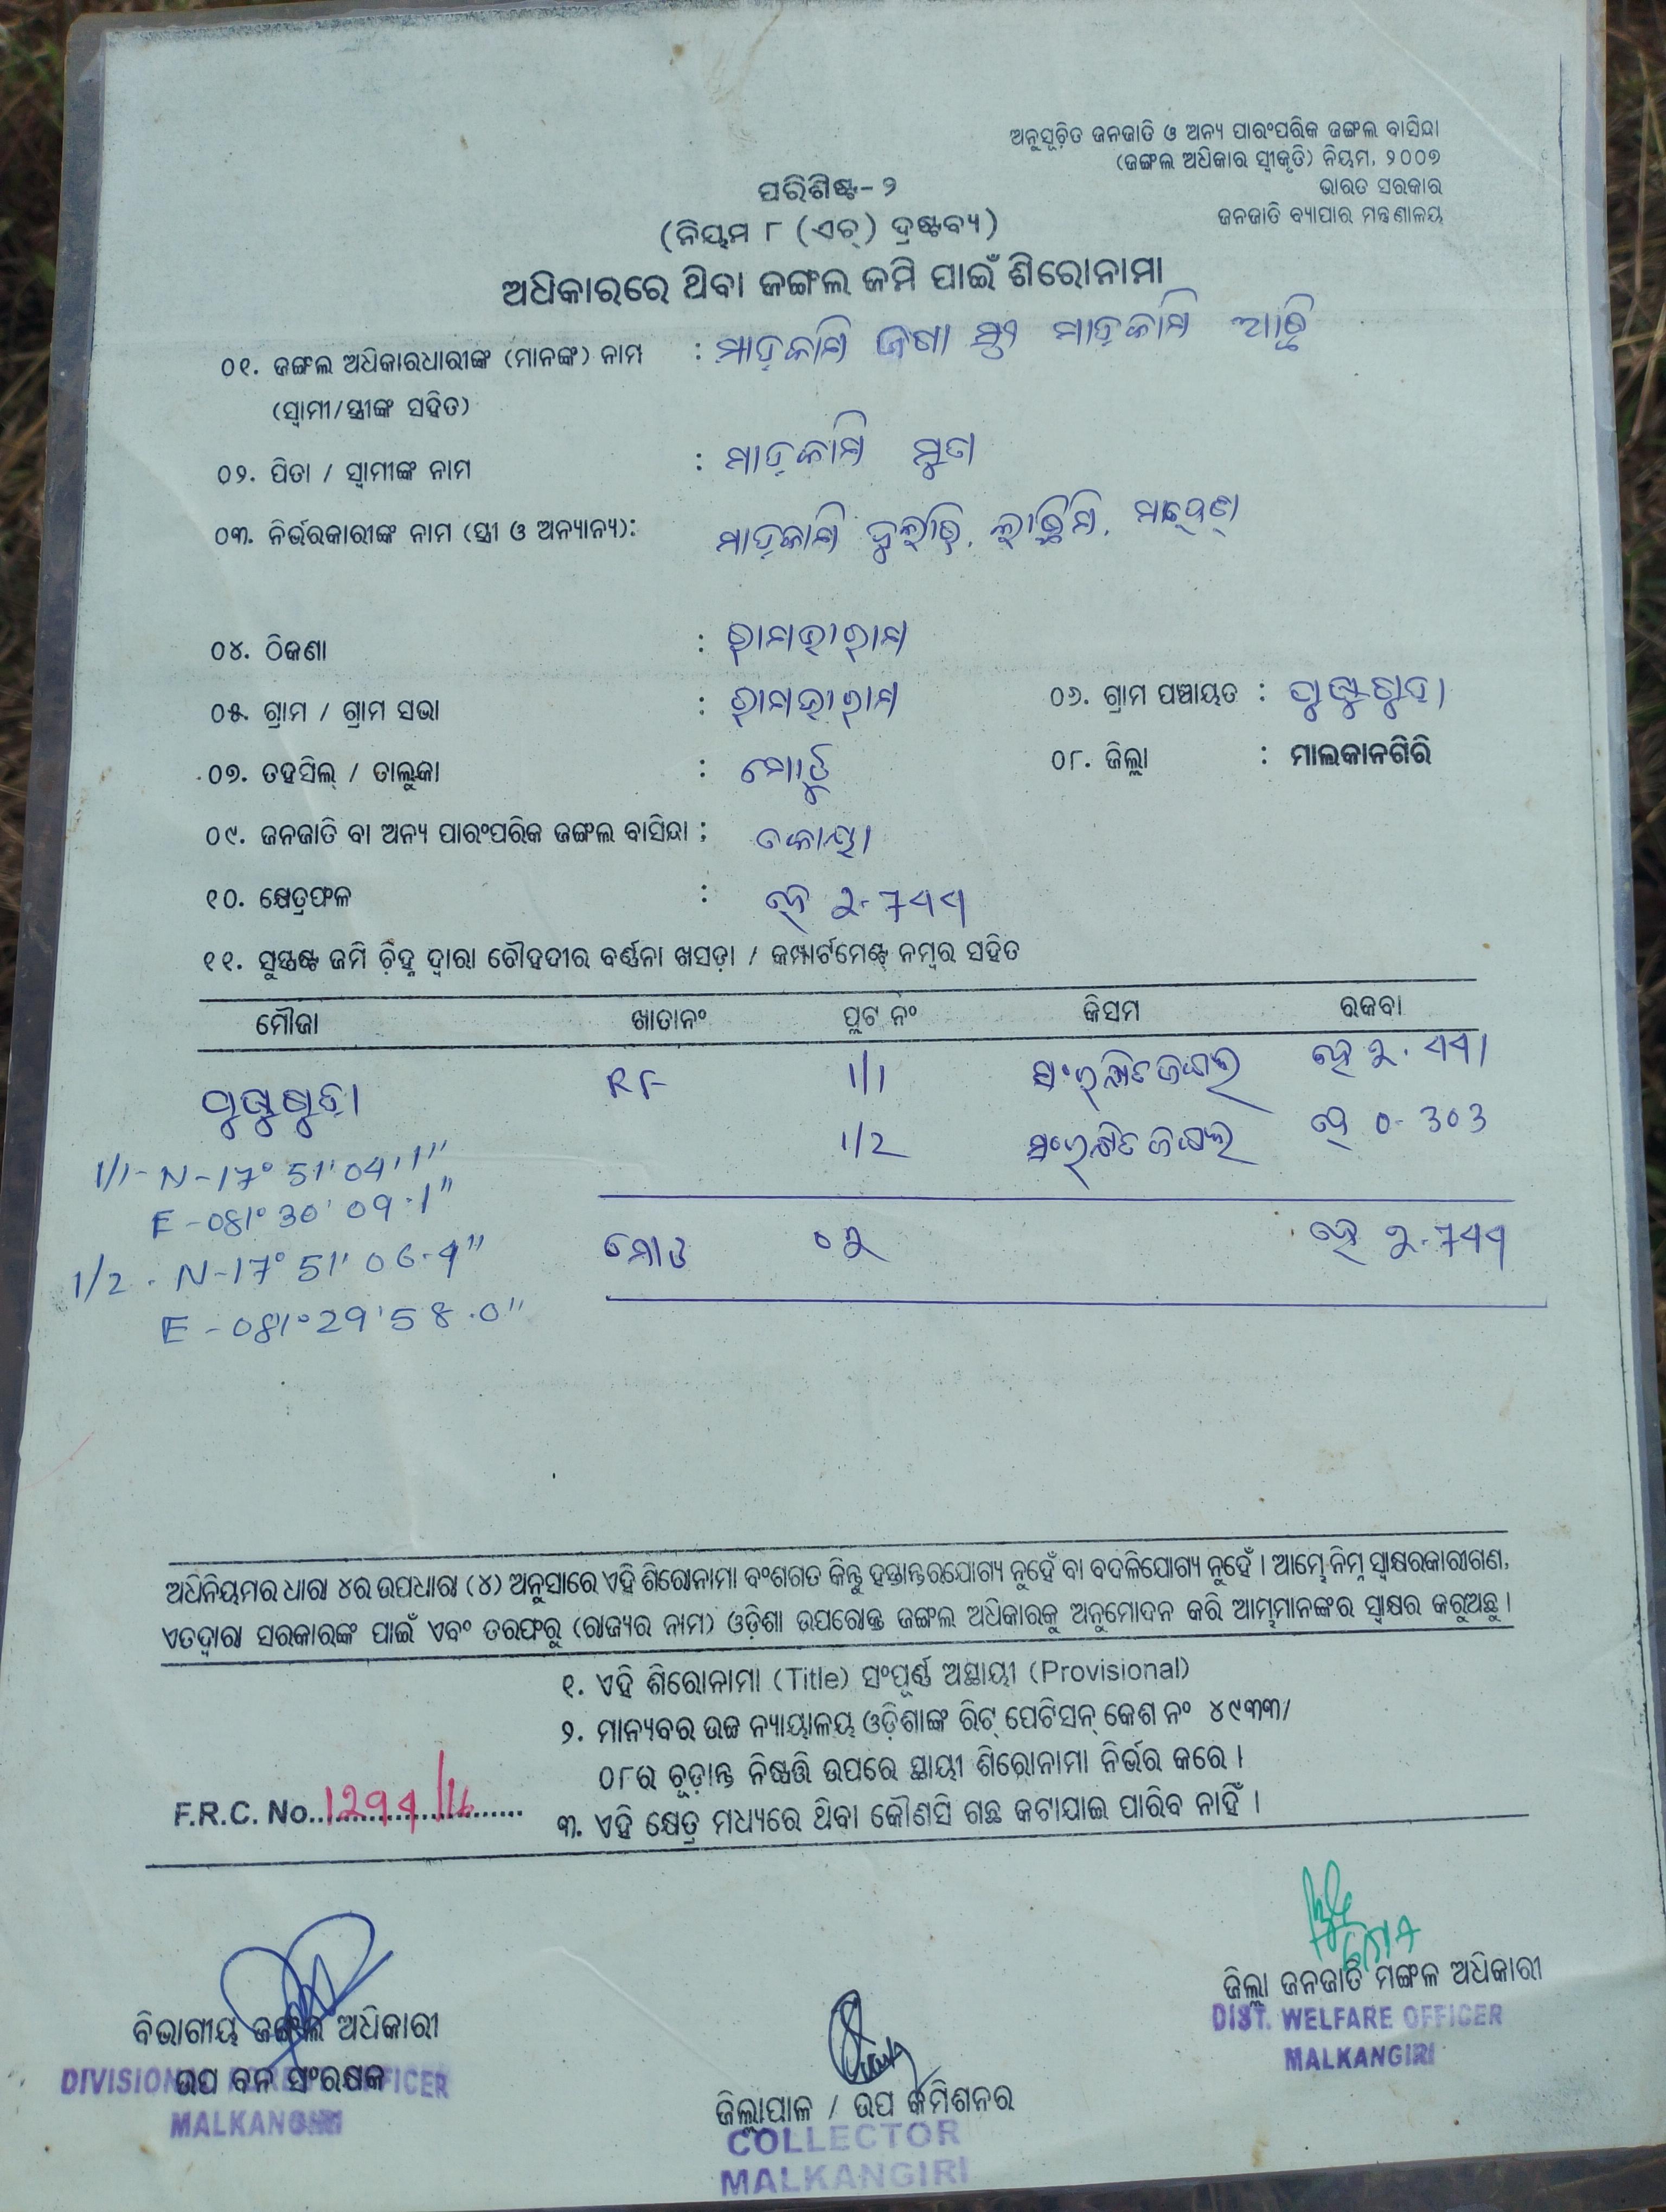 ଅନୁସୂଚିତ ଜନଜାତି ଓ ଅନ୍ୟ ପାରଂପରିକ ଜଙ୍ଗଲ ବାସିନ୍ଦା
(ଜଙ୍ଗଲ ଅଧିକାର ସ୍ୱୀକୃତି) ନିୟମ, ୨୦୦୭
ଭାରତ ସରକାର
ଜନଜାତି ବ୍ୟାପାର ମନ୍ତ୍ରଣାଳୟ
ପରିଶିଷ୍ଟ- ୨
(ନିୟମ ୮ (ଏଚ୍) ଦ୍ରଷ୍ଟବ୍ୟ)
ଅଧିକାରରେ ଥିବା ଜଙ୍ଗଲ ଜମି ପାଇଁ ଶିରୋନାମା
୦୧. ଜଙ୍ଗଲ ଅଧିକାରଧାରୀଙ୍କ (ମାନଙ୍କ) ନାମ : ମାଡ଼କାମି
(ସ୍ୱାମୀ/ସ୍ତ୍ରୀଙ୍କ ସହିତ)
୦୨. ପିତା / ସ୍ୱାମୀଙ୍କ ନାମ : ମାଡ଼କାମି
୦୩. ନିର୍ଭରକାରୀଙ୍କ ନାମ (ସ୍ତ୍ରୀ ଓ ଅନ୍ୟାନ୍ୟ): ମାଡ଼କାମି
୦୪. ଠିକଣା :
୦୫. ଗ୍ରାମ / ଗ୍ରାମ ସଭା : ୦୬. ଗ୍ରାମ ପଞ୍ଚାୟତ :
୦୭. ତହସିଲ୍ / ତାଲୁକା : ୦୮. ଜିଲ୍ଲା : ମାଲକାନଗିରି
୦୯. ଜନଜାତି ବା ଅନ୍ୟ ପାରଂପରିକ ଜଙ୍ଗଲ ବାସିନ୍ଦା : କୋୟା
୧୦. କ୍ଷେତ୍ରଫଳ : ହେ ୨.744
୧୧. ସୁସ୍ପଷ୍ଟ ଜମି ଚିହ୍ନ ଦ୍ୱାରା ଚୌହଦୀର ବର୍ଣ୍ଣନା ଖସଡ଼ା / କମ୍ପାର୍ଟମେଣ୍ଟ୍ ନମ୍ବର ସହିତ
ମୌଜା ଖାତାନଂ ପ୍ଲଟ ନଂ କିସମ ରକବା
RF 1/1 ସଂରକ୍ଷିତ ଜଙ୍ଗଲ ହେ ୨.441
1/2 ସଂରକ୍ଷିତ ଜଙ୍ଗଲ ହେ 0-303
1/1- N-17° 51' 04.1"
E-081° 30' 09.1"
1/2 . N-17° 51' 06.4"
E-081° 29' 58.0"
ମୋଟ ୦୨ ହେ ୨.744
ଅଧିନିୟମର ଧାରା ୪ର ଉପଧାରା (୪) ଅନୁସାରେ ଏହି ଶିରୋନାମା ବଂଶଗତ କିନ୍ତୁ ହସ୍ତାନ୍ତରଯୋଗ୍ୟ ନୁହେଁ ବା ବଦଳିଯୋଗ୍ୟ ନୁହେଁ । ଆମ୍ଭେ ନିମ୍ନ ସ୍ୱାକ୍ଷରକାରୀଗଣ,
ଏତଦ୍ୱାରା ସରକାରଙ୍କ ପାଇଁ ଏବଂ ତରଫରୁ (ରାଜ୍ୟର ନାମ) ଓଡ଼ିଶା ଉପରୋକ୍ତ ଜଙ୍ଗଲ ଅଧିକାରକୁ ଅନୁମୋଦନ କରି ଆମ୍ଭମାନଙ୍କର ସ୍ୱାକ୍ଷର କରୁଅଛୁ ।
୧. ଏହି ଶିରୋନାମା (Title) ସଂପୂର୍ଣ୍ଣ ଅସ୍ଥାୟୀ (Provisional)
୨. ମାନ୍ୟବର ଉଚ୍ଚ ନ୍ୟାୟାଳୟ ଓଡ଼ିଶାଙ୍କ ରିଟ୍ ପେଟିସନ୍ କେଶ ନଂ ୪୯୩୩/
୦୮ର ଚୂଡ଼ାନ୍ତ ନିଷ୍ପତ୍ତି ଉପରେ ସ୍ଥାୟୀ ଶିରୋନାମା ନିର୍ଭର କରେ ।
୩. ଏହି କ୍ଷେତ୍ର ମଧ୍ୟରେ ଥିବା କୌଣସି ଗଛ କଟାଯାଇ ପାରିବ ନାହିଁ ।
F.R.C. No.
ଜିଲ୍ଲା ଜନଜାତି ମଙ୍ଗଳ ଅଧିକାରୀ
DIST. WELFARE OFFICER
MALKANGIRI
ବିଭାଗୀୟ ଜଙ୍ଗଲ ଅଧିକାରୀ
ଉପ ବନ ସଂରକ୍ଷକ
DIVISIONAL FOREST OFFICER
MALKANGIRI
ଜିଲ୍ଲାପାଳ / ଉପ କମିଶନର
COLLECTOR
MALKANGIRI